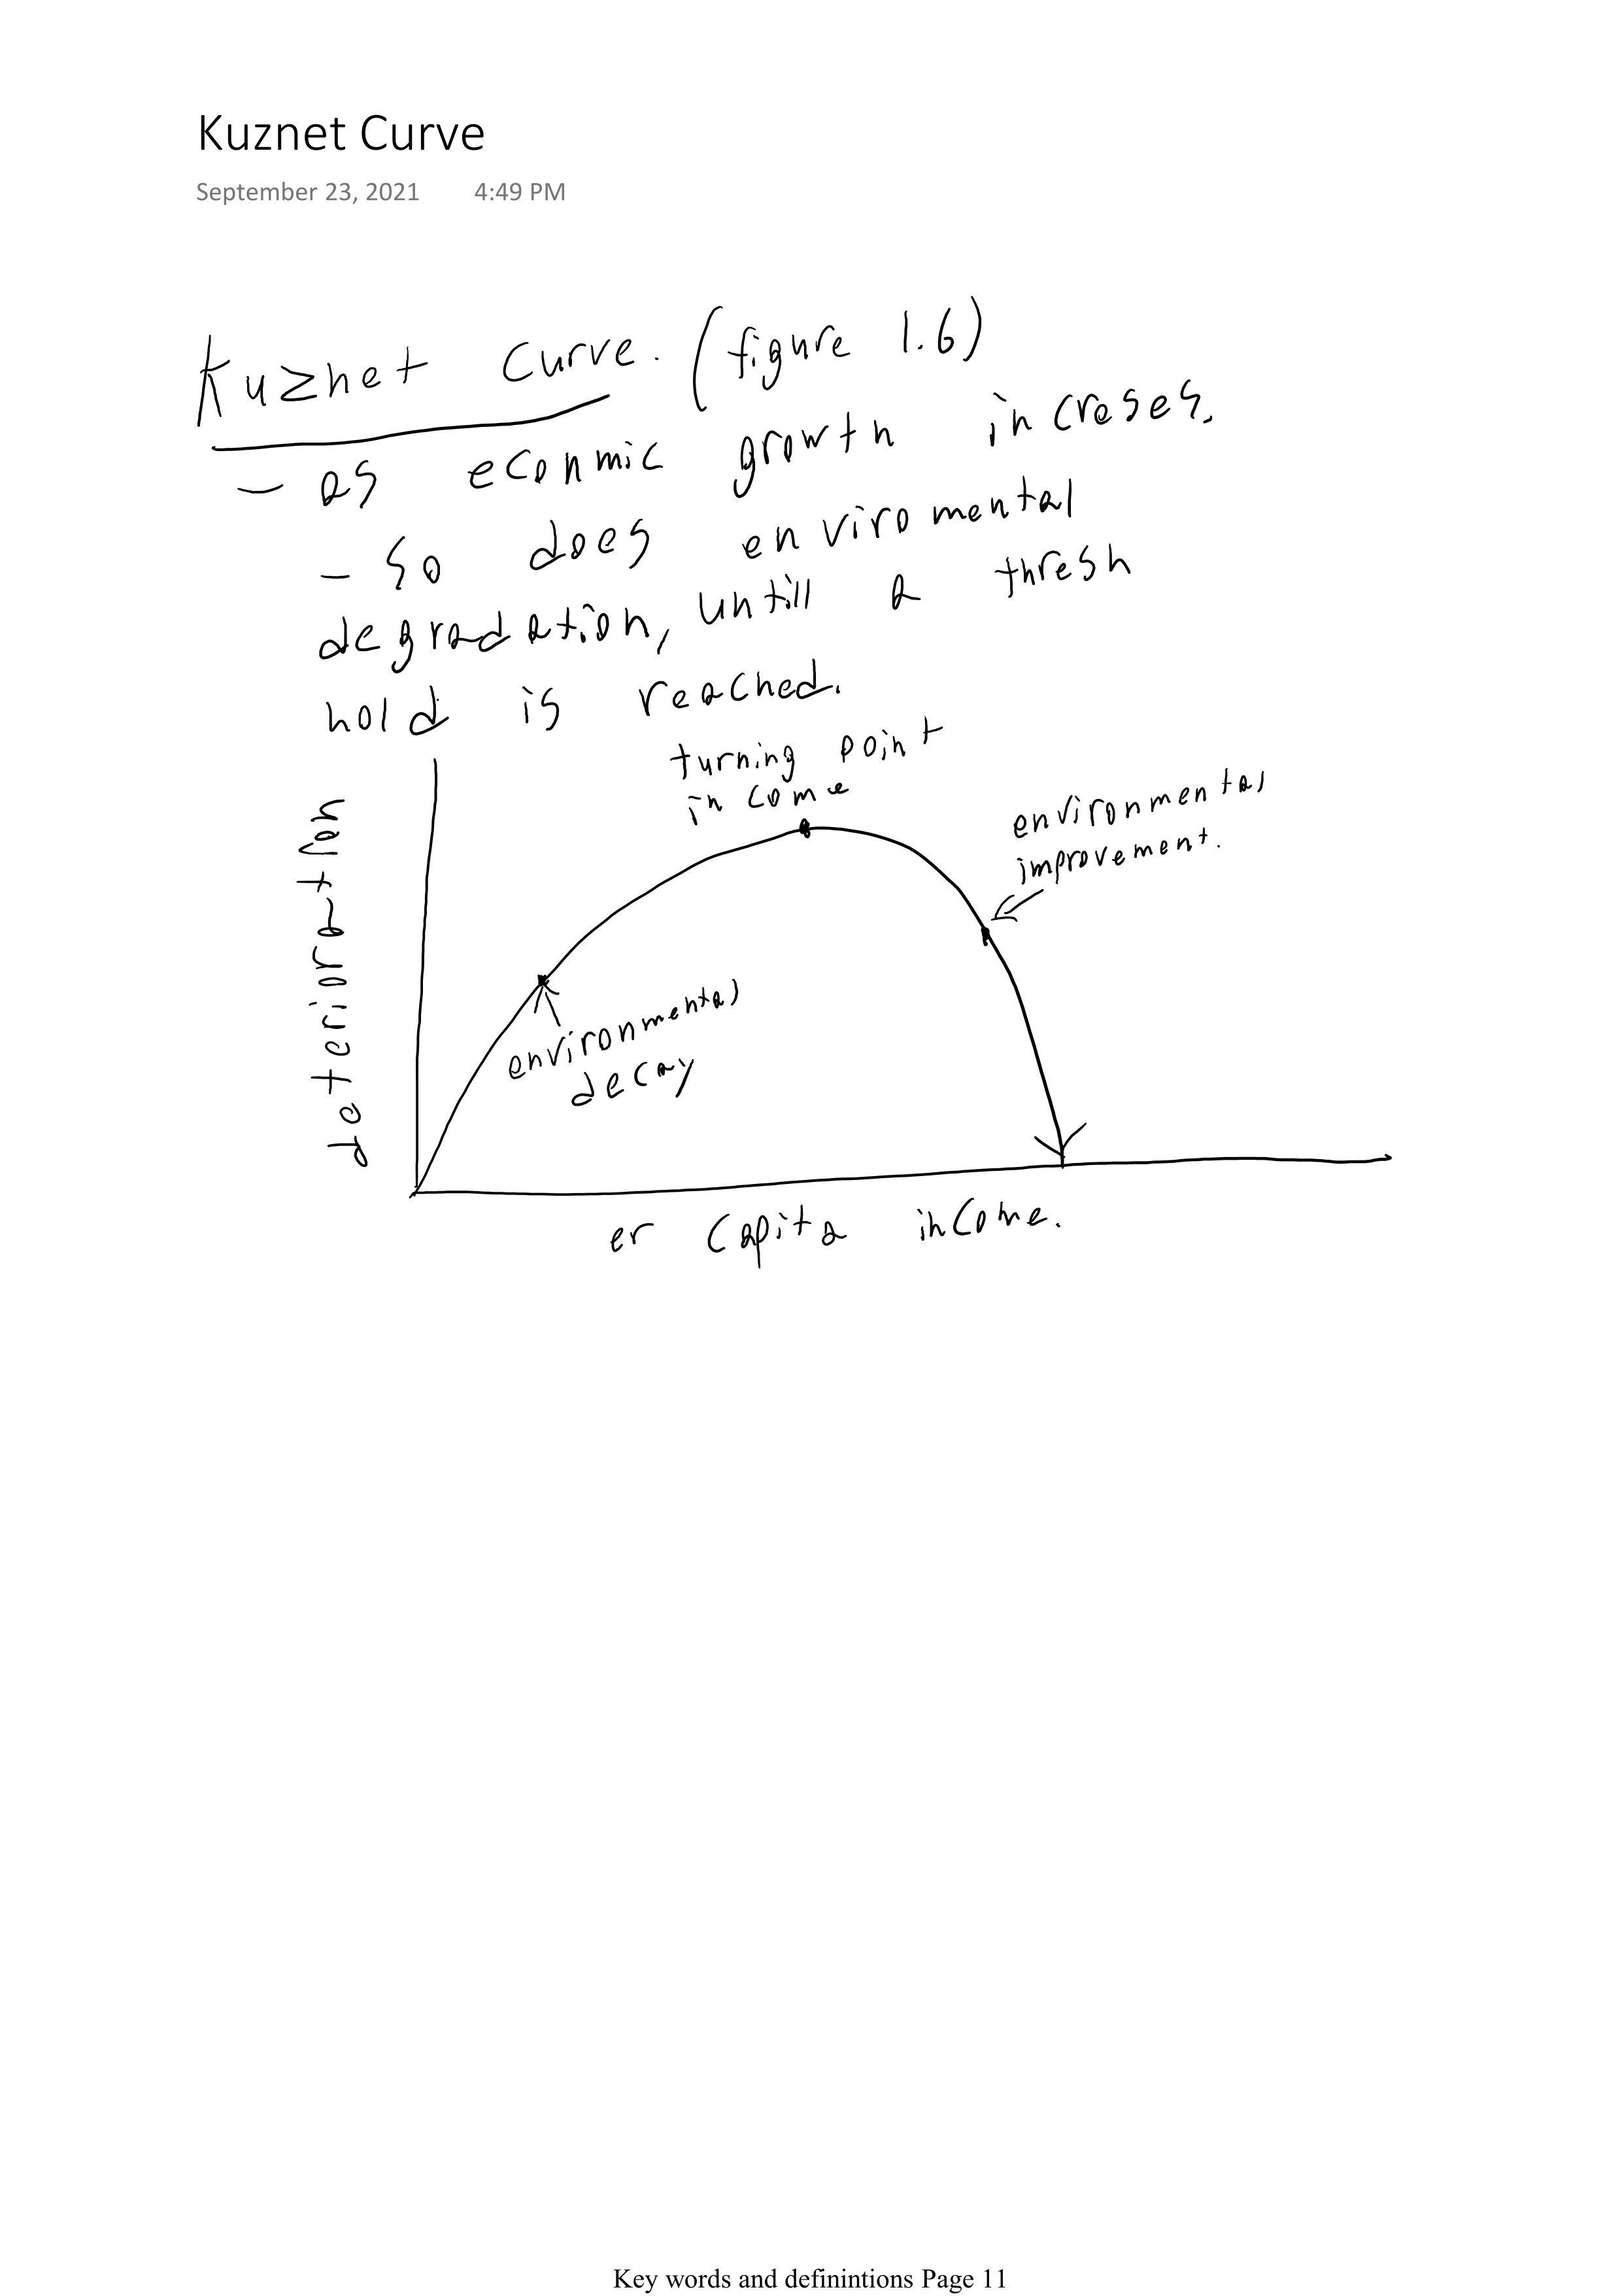 Kuznet Curve
September 23, 2021 4:49 PM
Kuznet Curve. (figure 1.6)
- as econmic growth increses.
- So does enviromental
degradation, untill a thresh
hold is reached.
turning point
income
environmental
improvement.
environmental
decay
Deterioration
er Capita income.
Key words and definintions Page 11